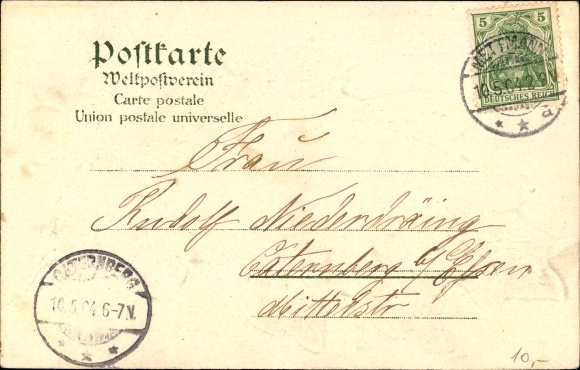 Postkarte
Weltpostverein
Carte postale
Union postale universelle
5 5
DEUTSCHES REICH
METTMANN
10.5.04
Frau
Rudolf Niederdräing
Osternberg b/ Essen
Mittelstr
10.5.04.6-7N.
10,-